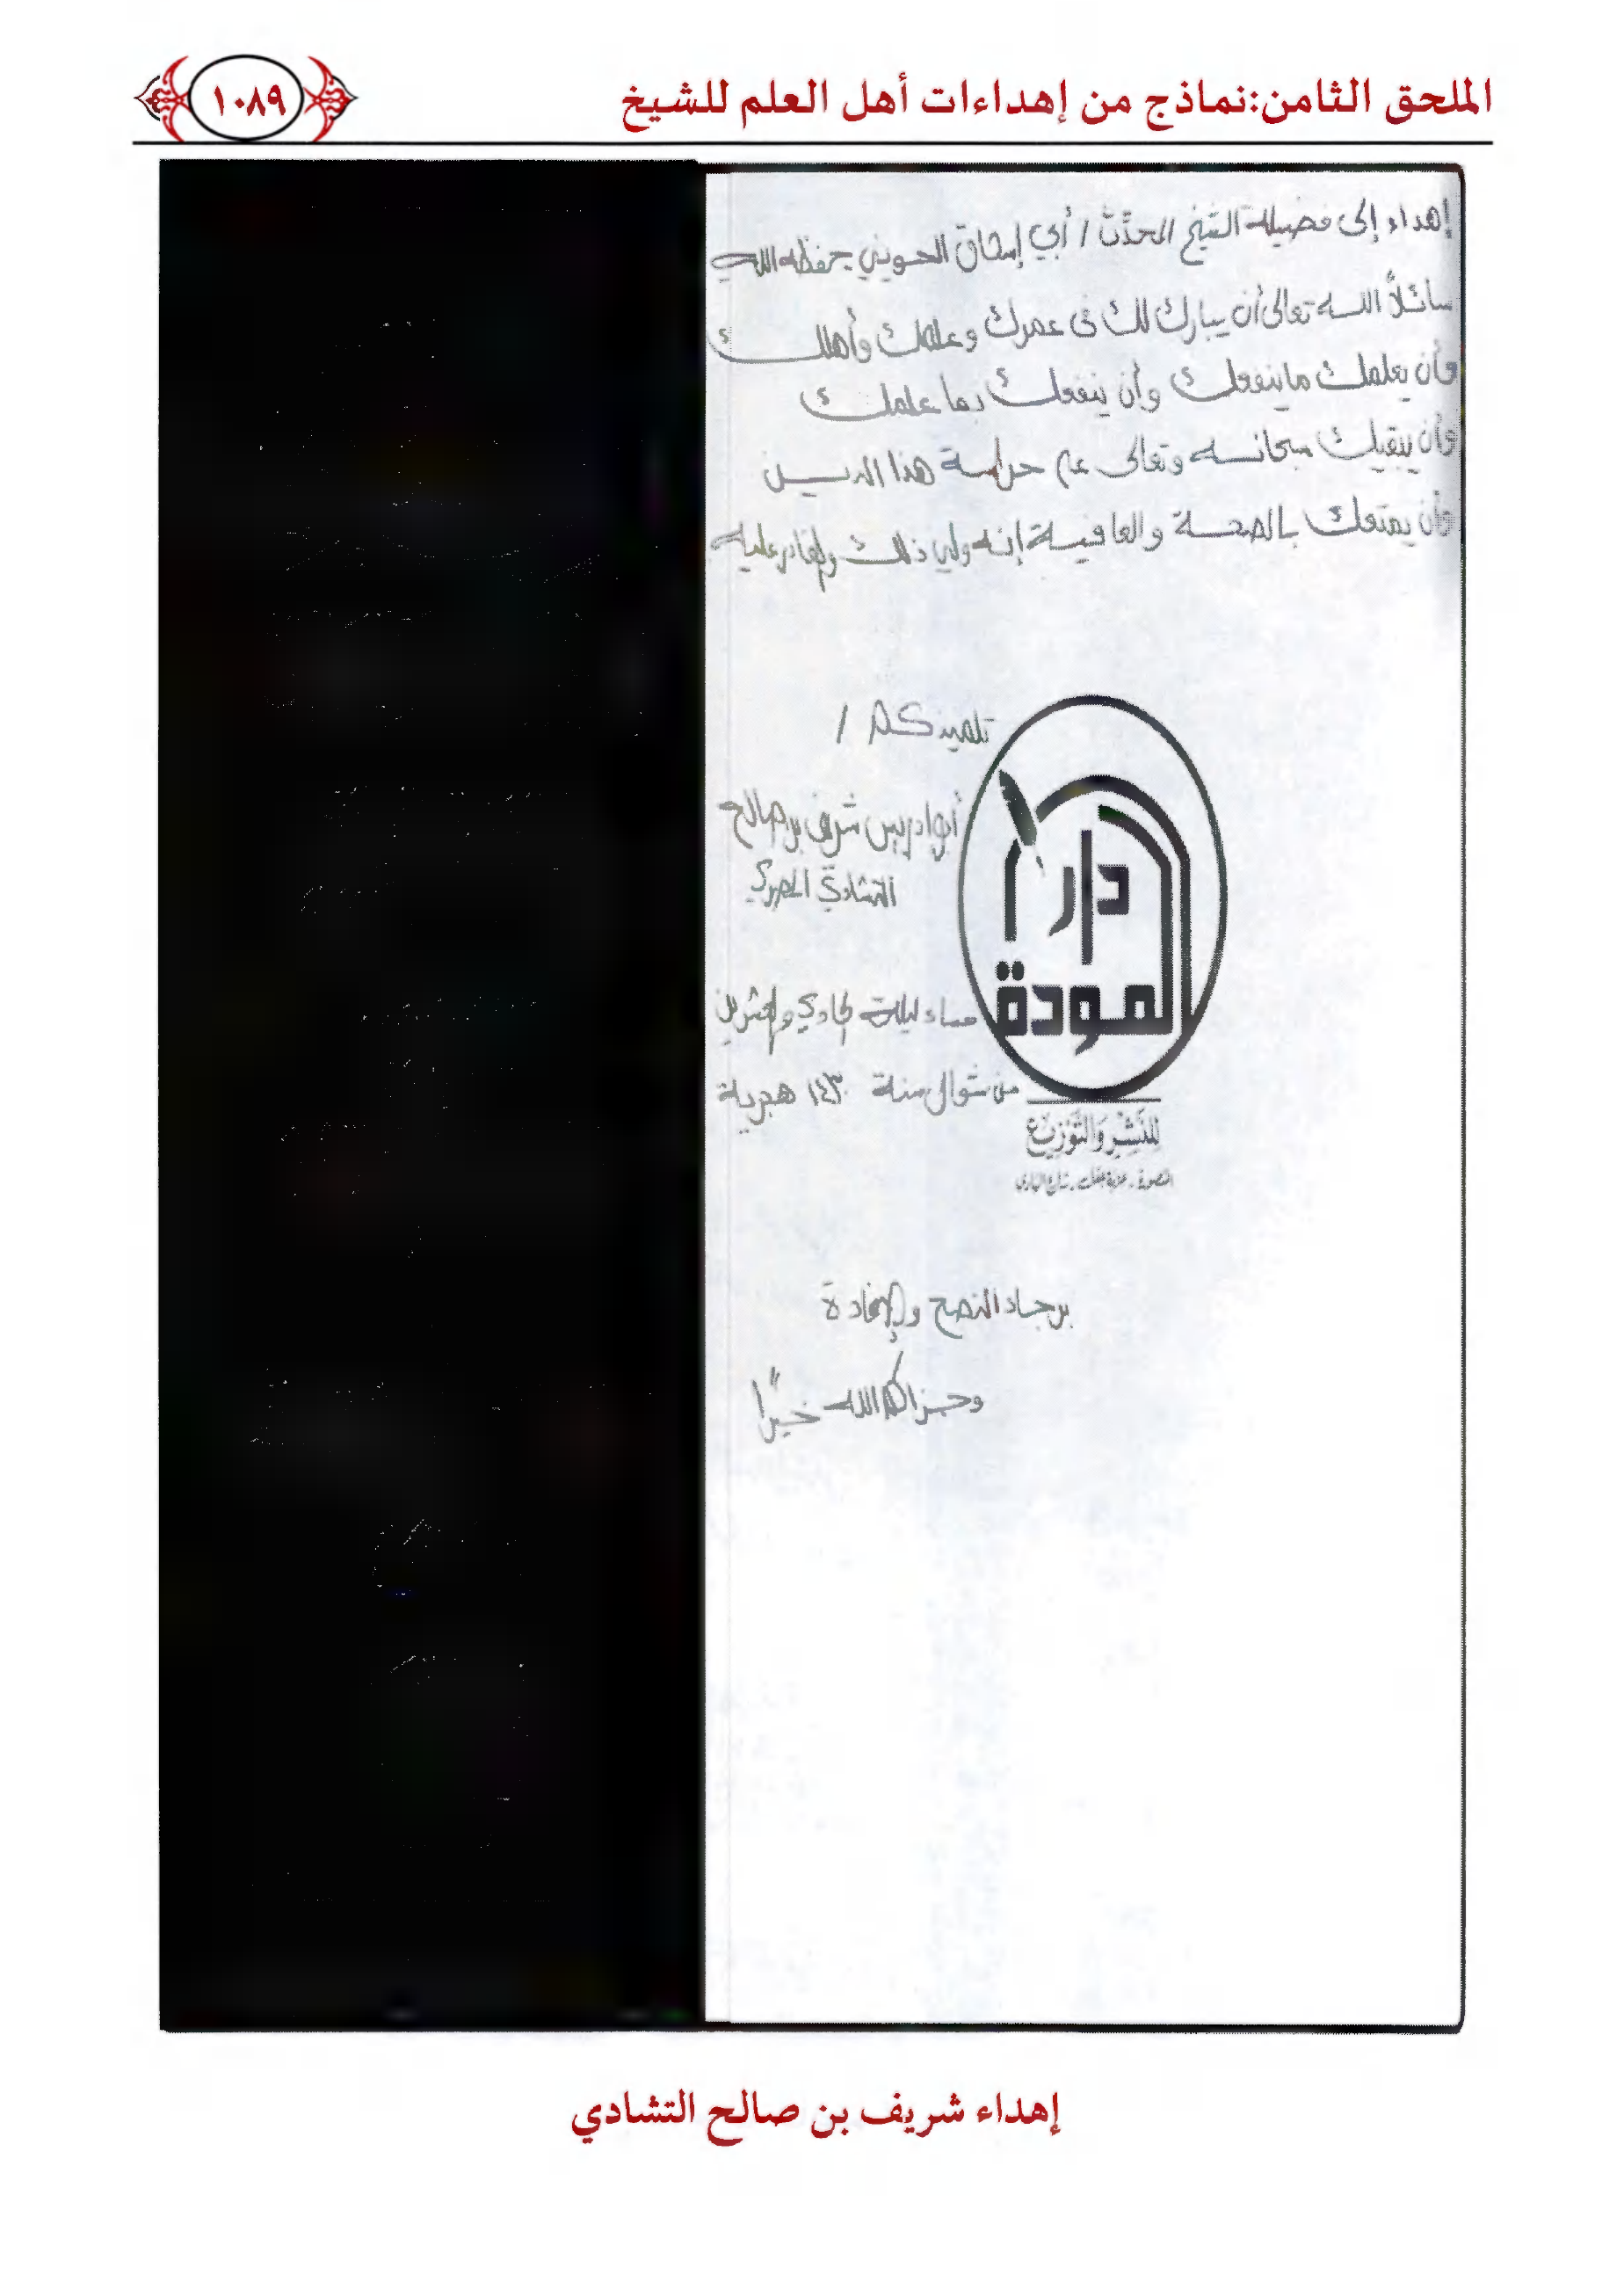 الملحق الثامن:نماذج من إهداءات أهل العلم للشيخ
١٠٨٩
إهداء إلى فضيلة الشيخ المحدِّث / أبي إسحاق الحويني حفظه الله
سائلاً الله تعالى أن يبارك لك فى عمرك وعلمك وأهلك
وأن يعلمك ماينفعك وأن ينفعك بما علمك
وأن يبقيك سبحانه وتعالى على حراسة هذا الدين
وأن يمتعك بالصحة والعافية إنه ولي ذلك والقادر عليه
تلميذكم /
أبو إدريس شريف بن صالح
التشادي المصري
مساء ليلة الحادي والعشرين
من شوال سنة ١٤٣٠ هجرية
دار
المودة
للنَّشْرِ وَالتَّوْزِيع
المنصورة - عزبة عقل - شارع الهادى
برجاء النصح والإفادة
وجزاكم الله خيرًا
إهداء شريف بن صالح التشادي